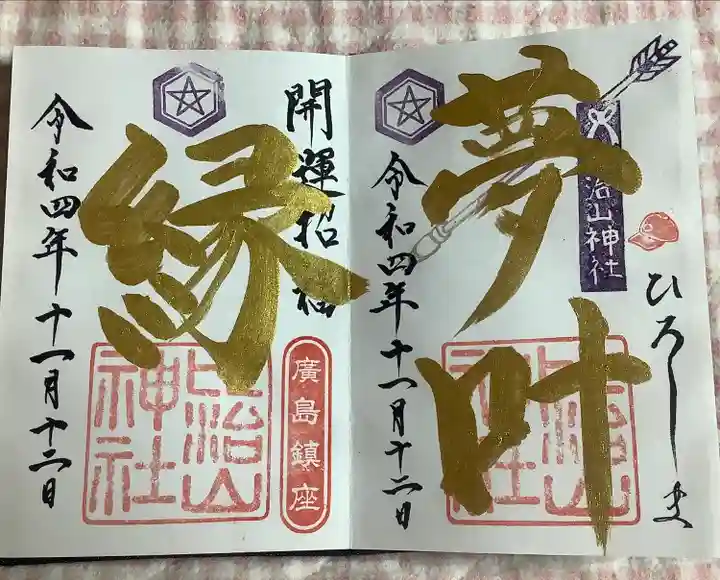 ひろしま
治山神社
夢叶
比治山神社
令和四年十一月十二日
開運招福
廣島鎮座
縁
比治山神社
令和四年十一月十二日